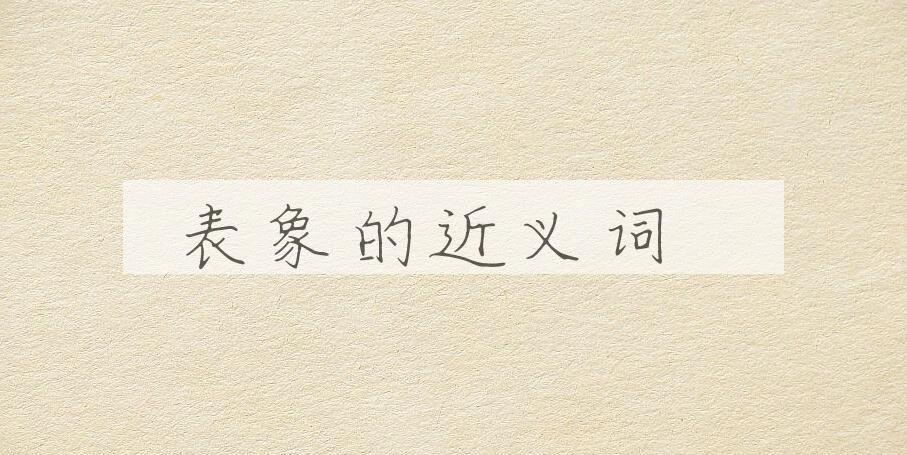 表象的近义词